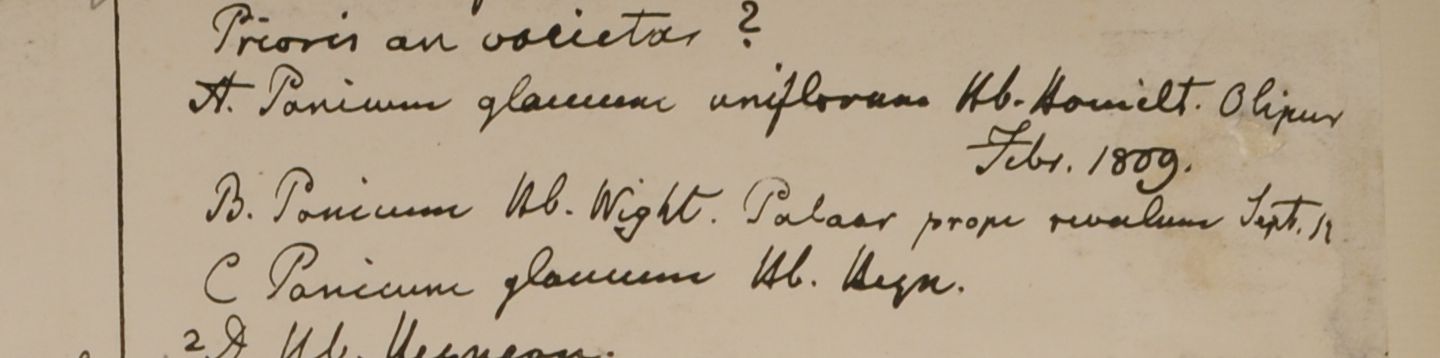 Prioris an varietas ?
A. Panicum glaucum uniflorum Hb. Hamilt. Olipur
Febr. 1809.
B. Panicum Hb. Wight. Palaar prope rivulum Sept. 12
C Panicum glaucum Hb. Heyn.
2 D Hb. Heyneon.